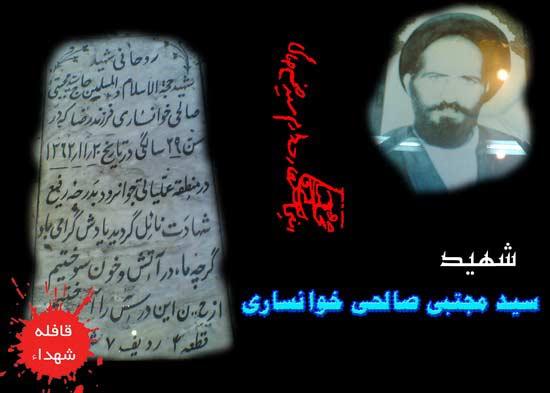 روحانی شهید
شهید حجة الاسلام والمسلمین حاج سید مجتبی
صالحی خوانساری فرزند رضا که در
سن ۲۹ سالگی در تاریخ ۱۳۶۲/۱۱/۲۰
در منطقه عملیاتی جوانرود بدرجه رفیع
شهادت نائل گردید یادش گرامی باد
گرچه ما در آتش و خون سوختیم
از این درس را
قطعه ۴ ردیف ۷
شهید
سید مجتبی صالحی خوانساری
قافله
شهداء